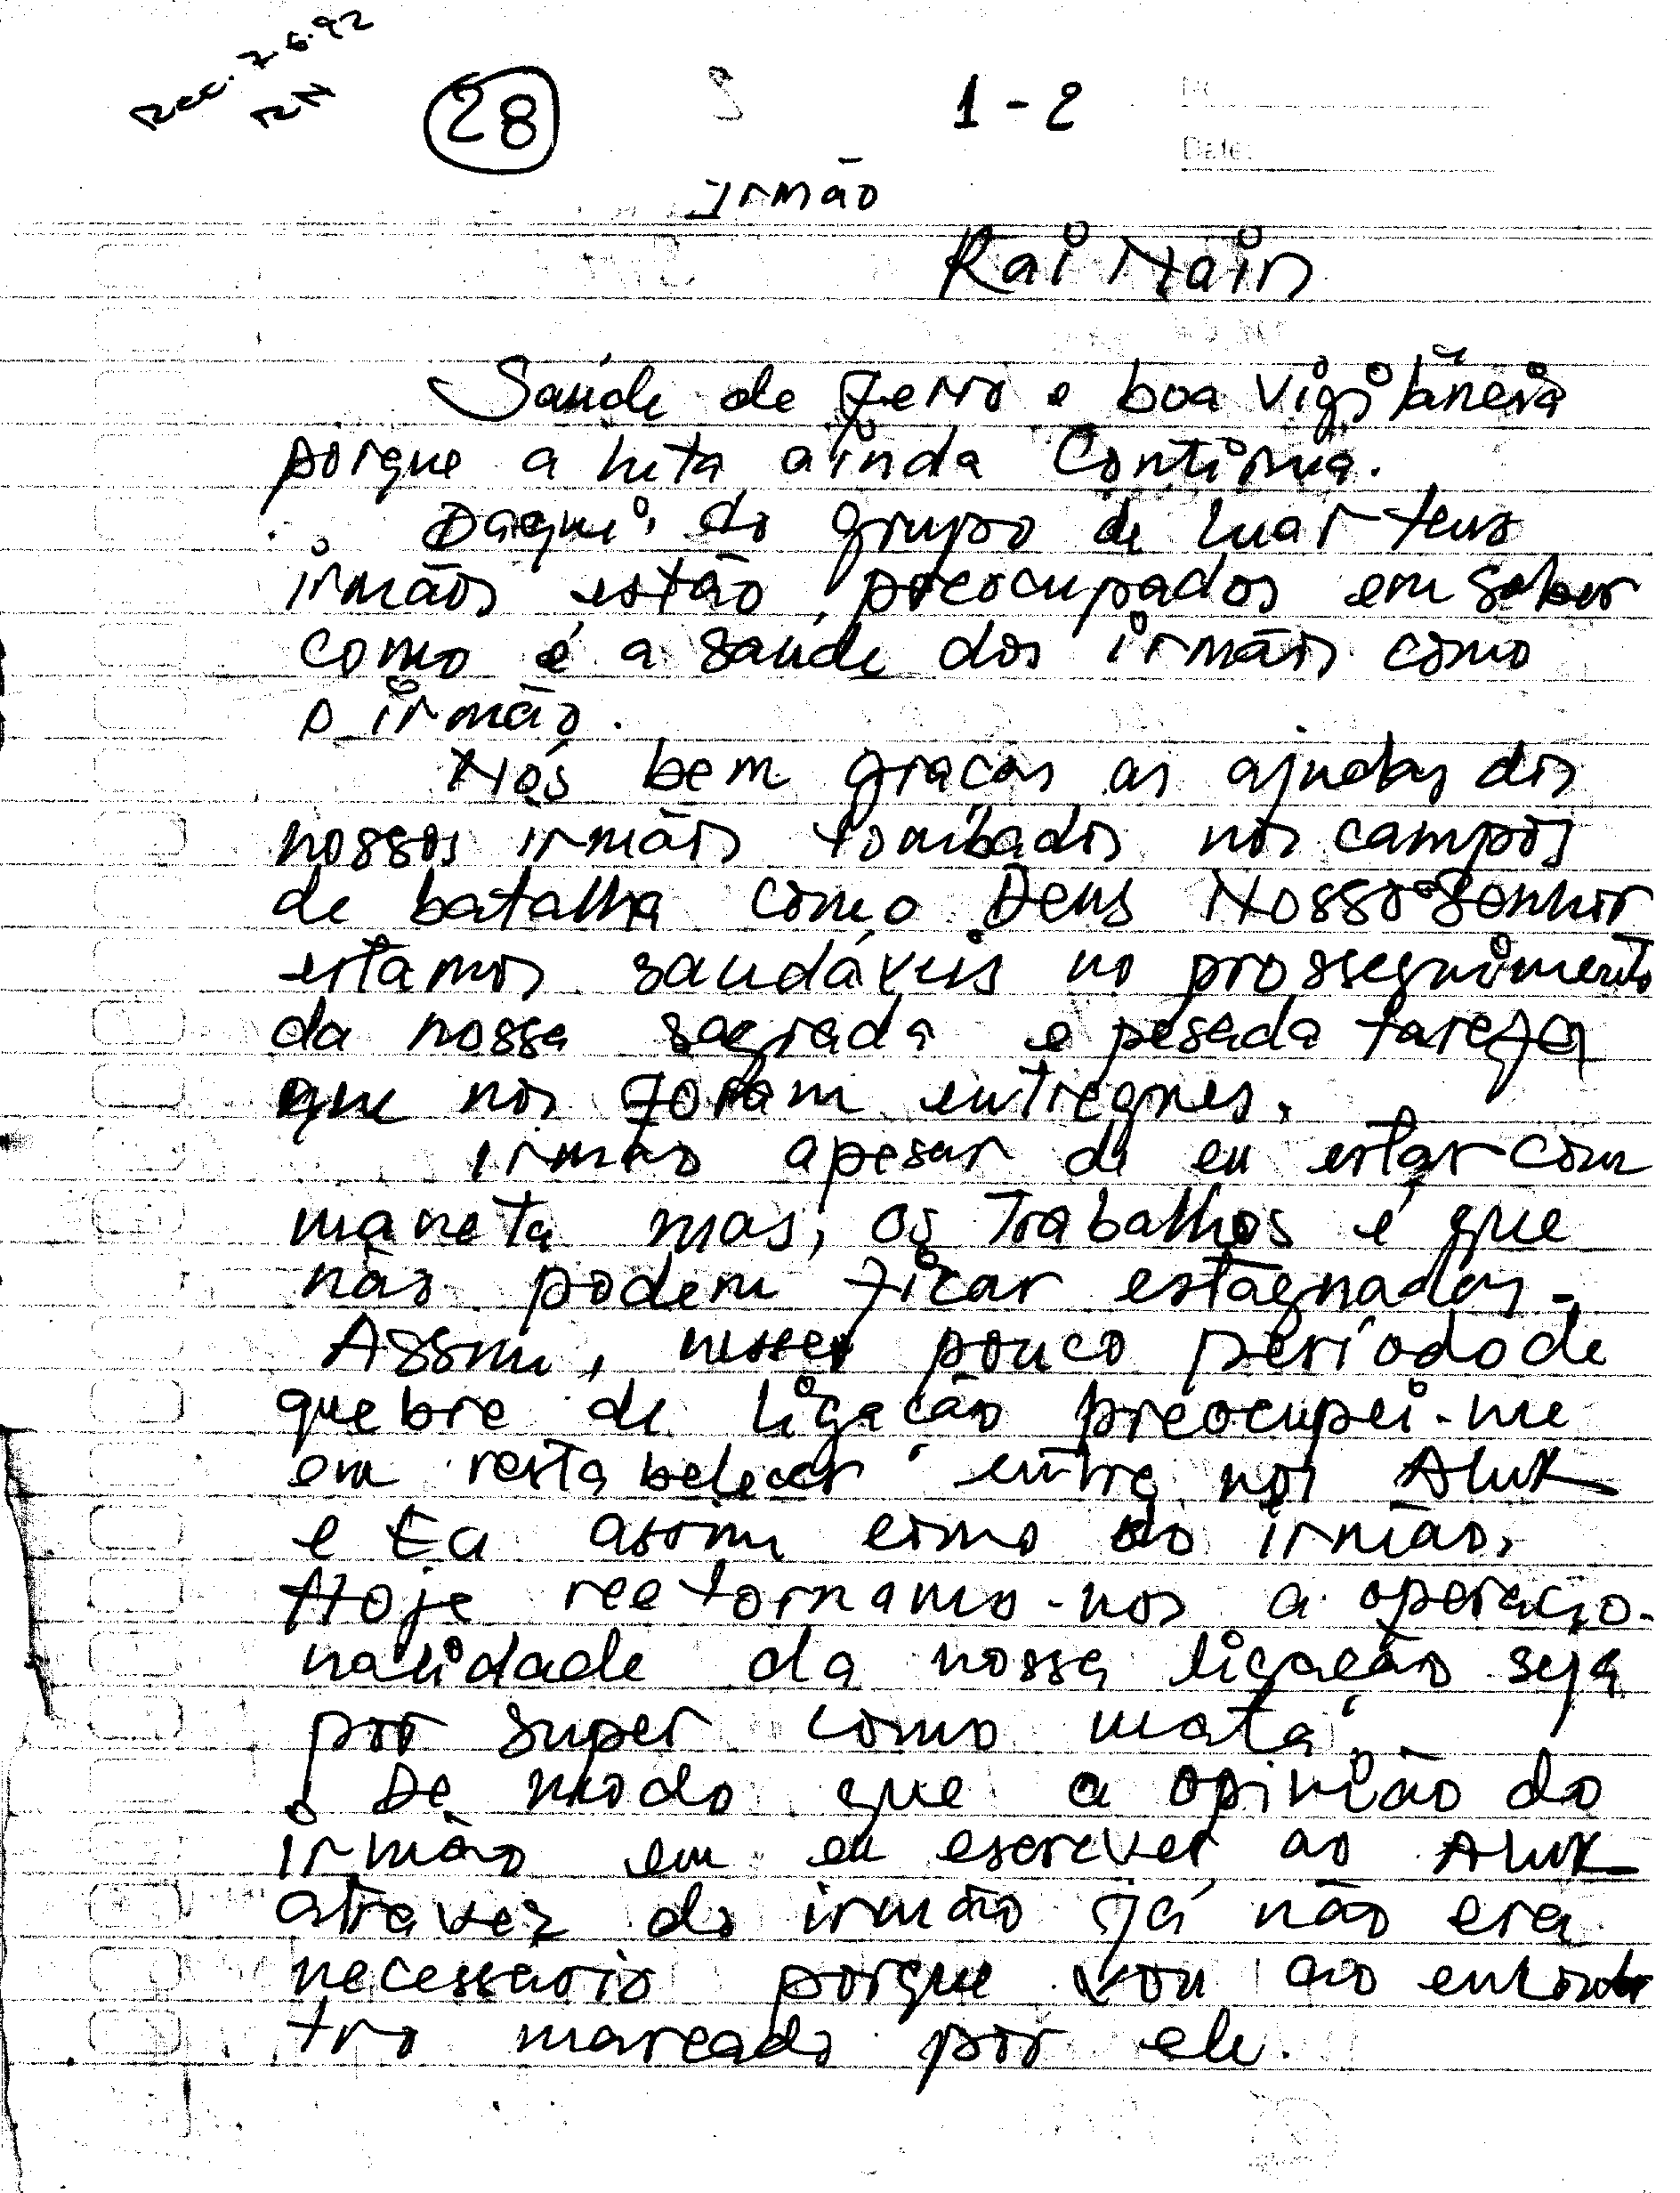 Rec. 7.6.92
RN
28
1-2
Nº
Date:
Irmão
Rai Nain
Saúde de ferro e boa vigilância
porque a luta ainda continua.
Daqui, do grupo de Luar teus
irmãos estão preocupados em saber
como é a saúde dos irmãos como
o irmão.
Nós bem graças as ajudas dos
nossos irmãos tombados nos campos
de batalha como Deus Nosso Senhor
estamos saudáveis no prosseguimento
da nossa sagrada e pesada tarefa
que nos foram entregues.
Irmão apesar de eu estar com
maneta mas, os trabalhos é que
não podem ficar estagnados.
Assim, nesses pouco período de
quebre de ligação preocupei-me
em restabelecer entre nós Aluk
e Ea assim como do irmão.
Hoje reetornamo-nos a operacio-
nalidade da nossa ligação seja
por super como mata.
De modo que a opinião do
irmão em eu escrever ao Aluk
atravez do irmão já não era
necessário porque vou ao encon
tro marcado por ele.